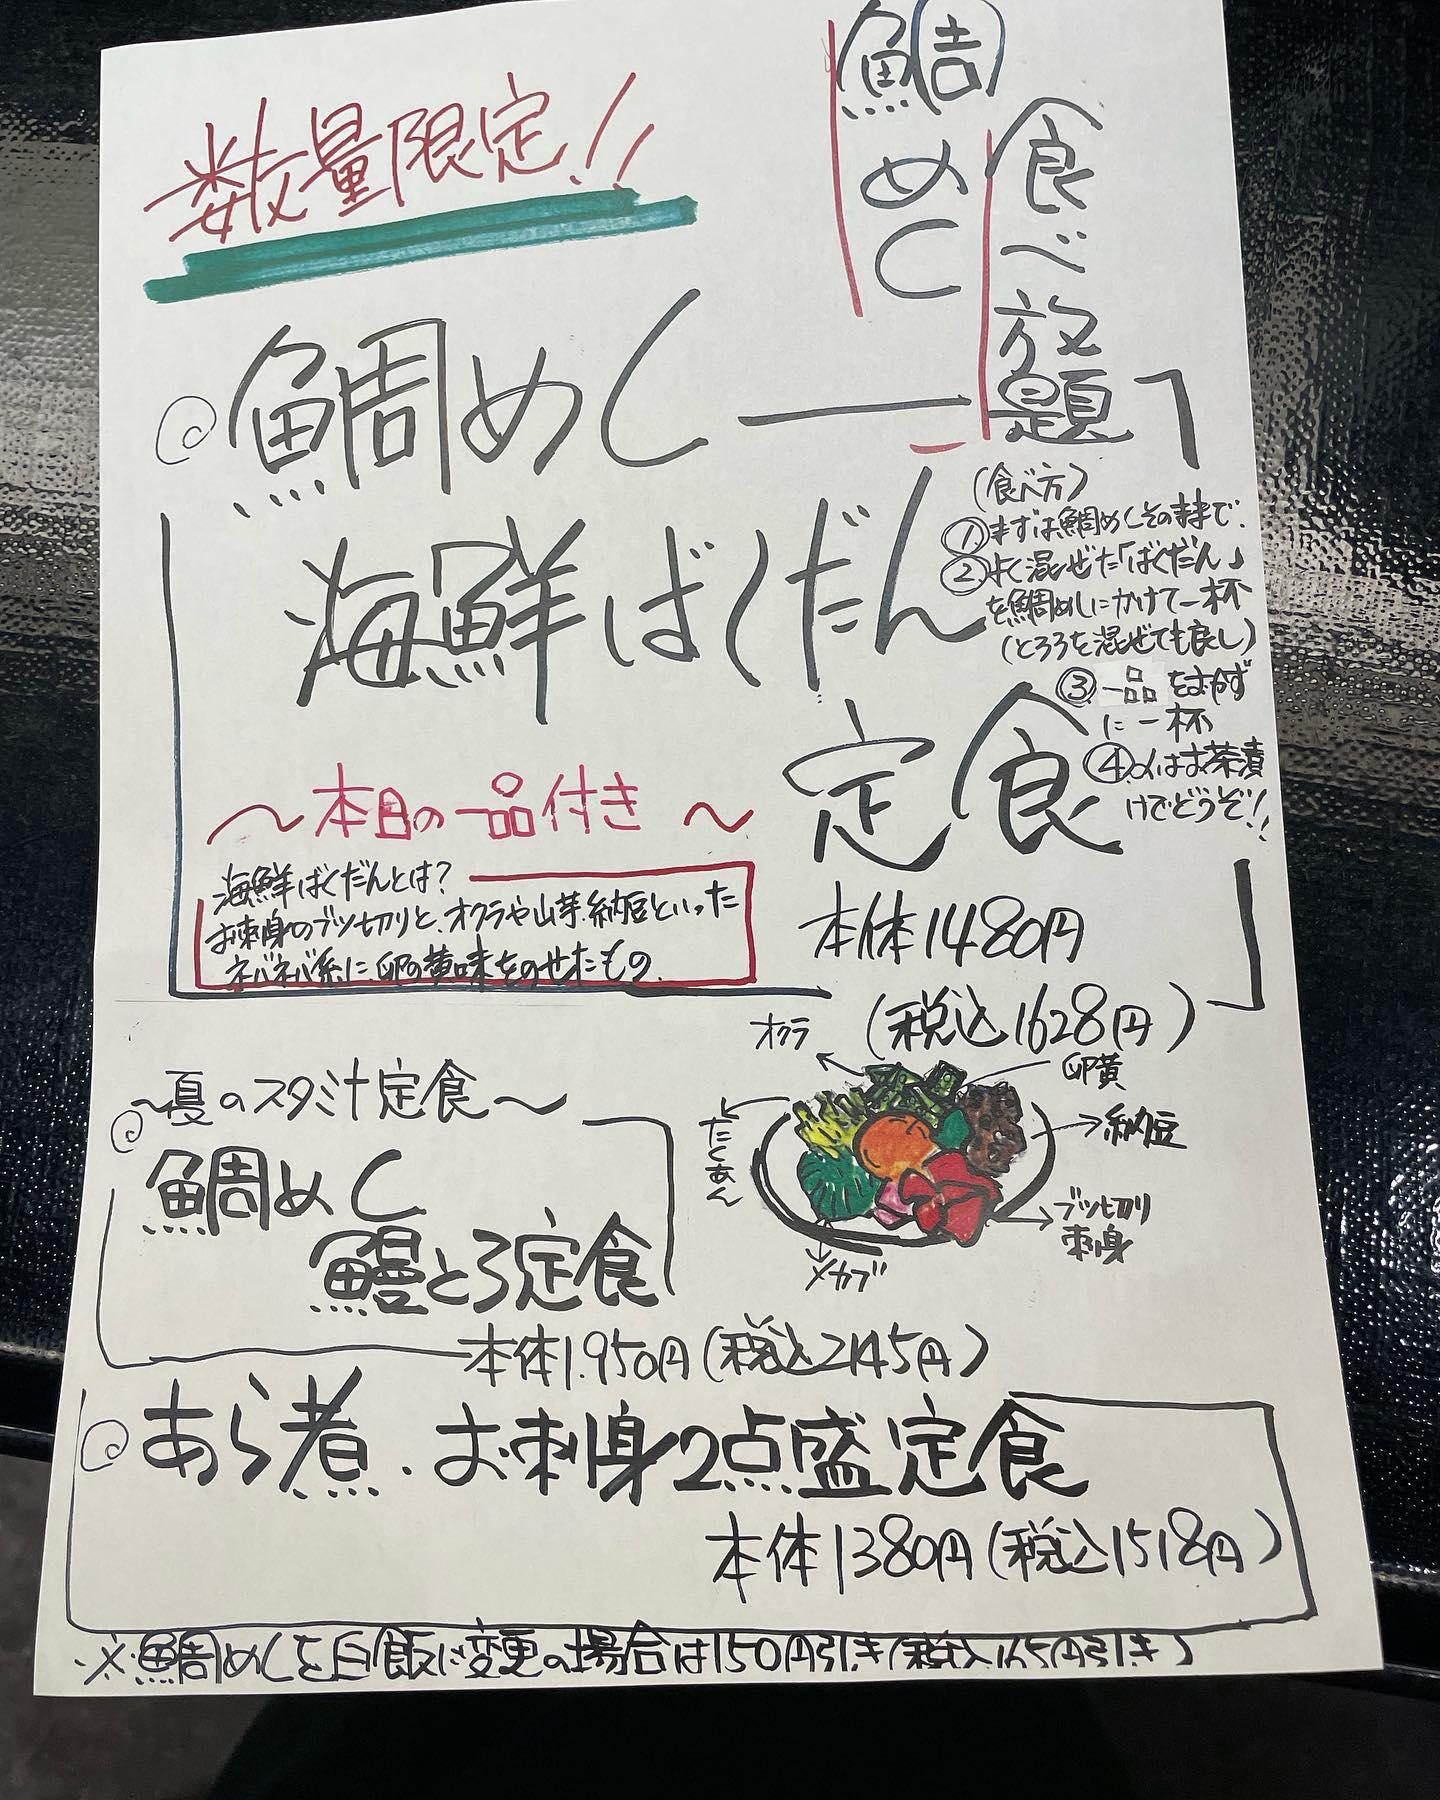 数量限定!!
鯛めし
食べ放題
鯛めし
海鮮ばくだん
定食
(食べ方)
①まずは鯛めしそのままで、
②よく混ぜた「ばくだん」
を鯛めしにかけて一杯
(とろろを混ぜても良し)
③一品をおかず
に一杯
④〆はお茶漬
けでどうぞ!!
〜本日の一品付き〜
海鮮ばくだんとは?
お刺身のブツ切りと、オクラや山芋、納豆といった
ネバネバ系に卵の黄味をのせたもの
本体1480円
(税込1628円)
オクラ
卵黄
納豆
たくあん
ブツ切り
刺身
メカブ
〜夏のスタミ汁定食〜
鯛めし
鰻とろ定食
本体1.950円(税込2145円)
あら煮・お刺身2点盛定食
本体1380円(税込1518円)
※鯛めしを白飯に変更の場合は150円引き(税込165円引き)